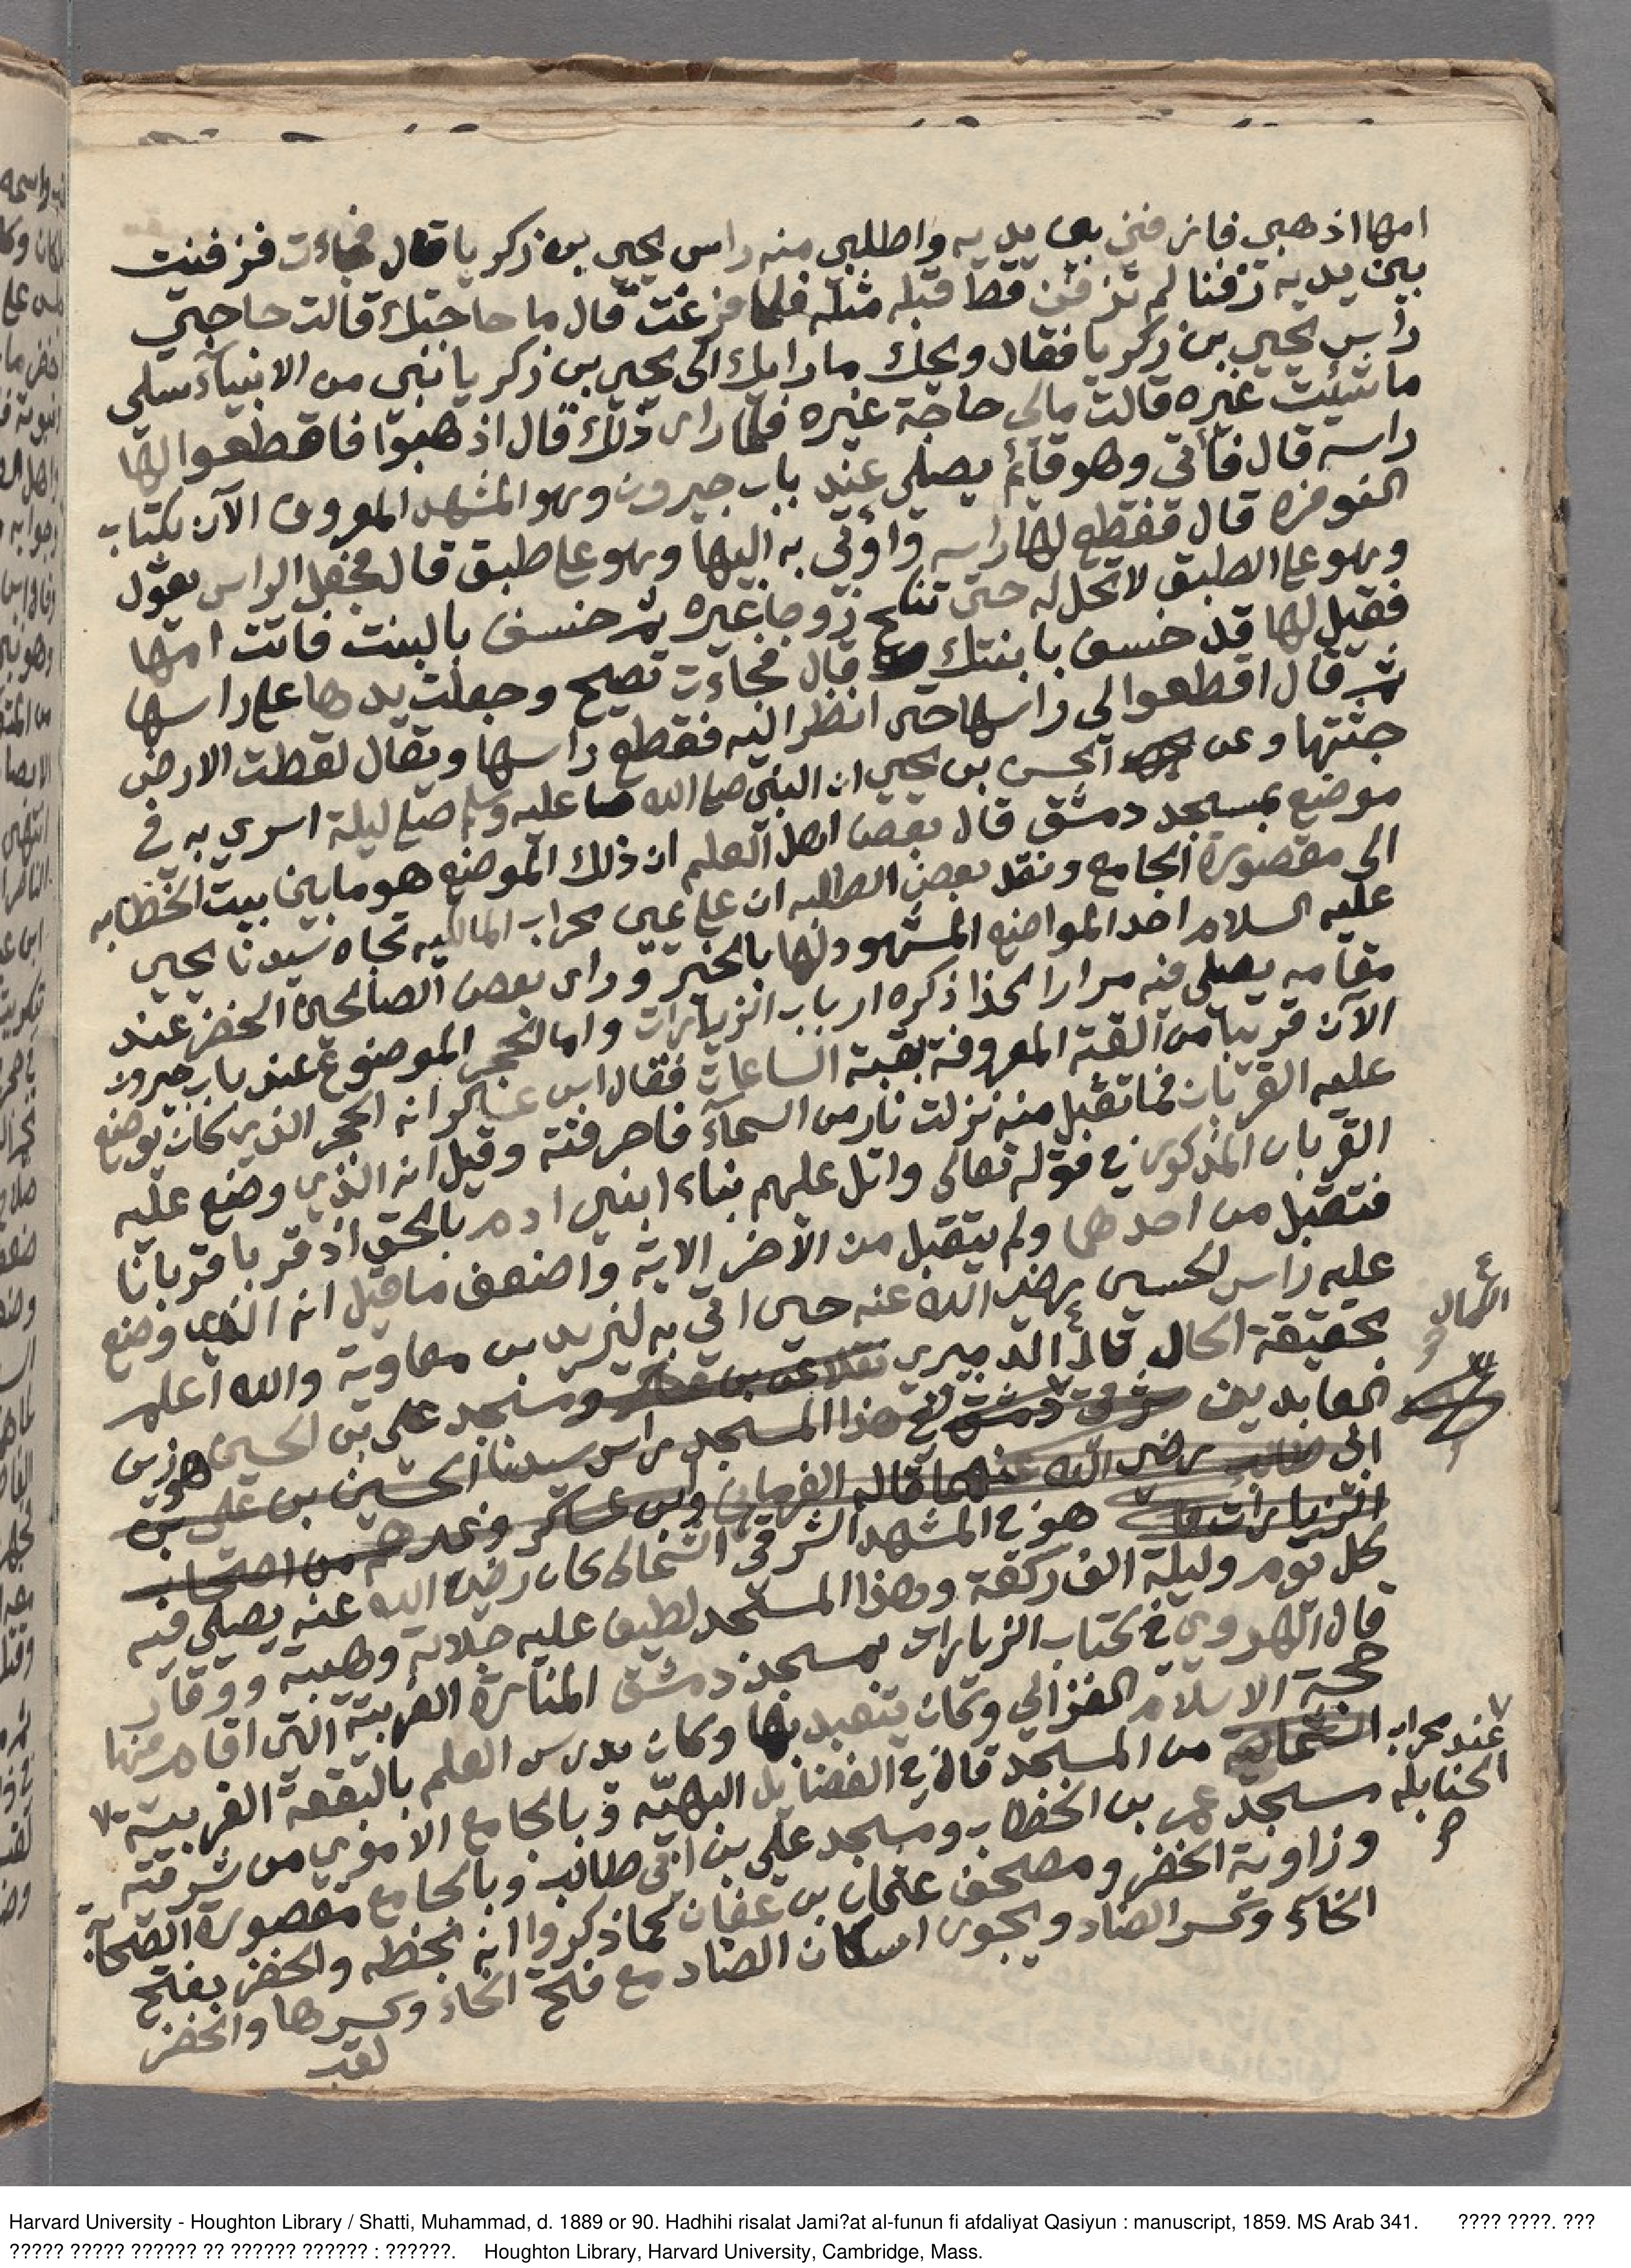 امها اذهبي فازفني بين يديه واطلبي منه راس يحيي بن زكريا قال فجاءت فزفنت
بين يديه زفنا لم تزفن قط قبله مثله فلما فرغت قال ما حاجتك قالت حاجتي
راس يحيي بن زكريا فقال ويحك ما رابك الى يحيي بن زكريا نبي من الانبيآء سلي
ما شئت غيره قالت مالي حاجة غيره فلما راى ذلك قال اذهبوا فاقطعوا لها
راسه قال فأتي وهو قآئم يصلي عند باب جيرون وهو المشهد المعروف الآن بكتاب
النوفره قال فقطع لها راسه واؤتي به اليها وهو على طبق قال فجعل الراس يقول
وهو على الطبق لا تحل له حتى تنكح زوجا غيره ثم خسف بالبنت فاتت امها
فقيل لها قد خسف بابنتك قال فجاءت تصيح وجعلت يدها على راسها
ثم قال اقطعوا لي راسها حتى انظر اليه فقطع راسها ويقال لفظت الارض
جثتها وعن الحسن بن يحيي ان النبي صلى الله عليه وسلم صلى ليلة اسري به في
موضع بمسجد دمشق قال بعض اهل العلم ان ذلك الموضع هو ما بين بيت الخطابه
الى مقصورة الجامع ونقل بعض الطلبه ان على يمين محراب المالكيه تجاه سيدنا يحيي
عليه السلام احد المواضع المشهود لها بالخير وراى بعض الصالحين الخضر عند
مقامه يصلي فيه مرارا كذا ذكره ارباب الزيارات واما الحجر الموضوع عند باب جيرون
الآن قريبا من القبة المعروفة بقبة الساعات فقال ابن عساكر انه الحجر الذي كان يوضع
عليه القربان فما تقبل منه نزلت نار من السمآء فاحرقته وقيل انه الذي وضع عليه
القربان المذكور في قوله تعالى واتل عليهم نباء ابني ادم بالحق اذ قربا قربانا
فتقبل من احدهما ولم يتقبل من الآخر الاية واضعف ما قيل انه الذي وضع
عليه راس الحسين رضي الله عنه حين اتي به ليزيد بن معاوية والله اعلم
بحقيقة الحال قال الدميري ومسجد علي بن الحسين هو زين
العابدين شرقي دمشق في هذا المسجد راس سيدنا الحسين بن علي بن
ابي طالب رضي الله عنهما قاله الفرماني وابن عساكر وغيرهم من اصحاب
الزيارات هو في المشهد الشرقي الشمالي كان رضي الله عنه يصلي فيه
كل يوم وليلة الف ركعة وهذا المسجد لطيف عليه جلالة وهيبة ووقار
قال الهروي في كتاب الزيارات بمسجد دمشق المنارة الغربية التي اقام منها
حجة الاسلام الغزالي وكان يتعبد بها وكان يدرس العلم بالبقعة الغربية
الشمالية من المسجد قال في الفضايل البهيّه وبالجامع الاموي من شرقيه
عند محراب
الحنابله
مسجد عمر بن الخطاب ومسجد علي بن ابي طالب وبالجامع مقصورة الصحآبة
وزاوية الخضر ومصحف عثمان بن عفان كما ذكروا انه بخطه والخضر بفتح
الخآء وكسر الضاد ويجوز اسكان الضاد مع فتح الخاء وكسرها والخضر
لقب
Harvard University - Houghton Library / Shatti, Muhammad, d. 1889 or 90. Hadhihi risalat Jami?at al-funun fi afdaliyat Qasiyun : manuscript, 1859. MS Arab 341. ???? ????. ???
????? ????? ?????? ?? ?????? ?????? : ??????. Houghton Library, Harvard University, Cambridge, Mass.